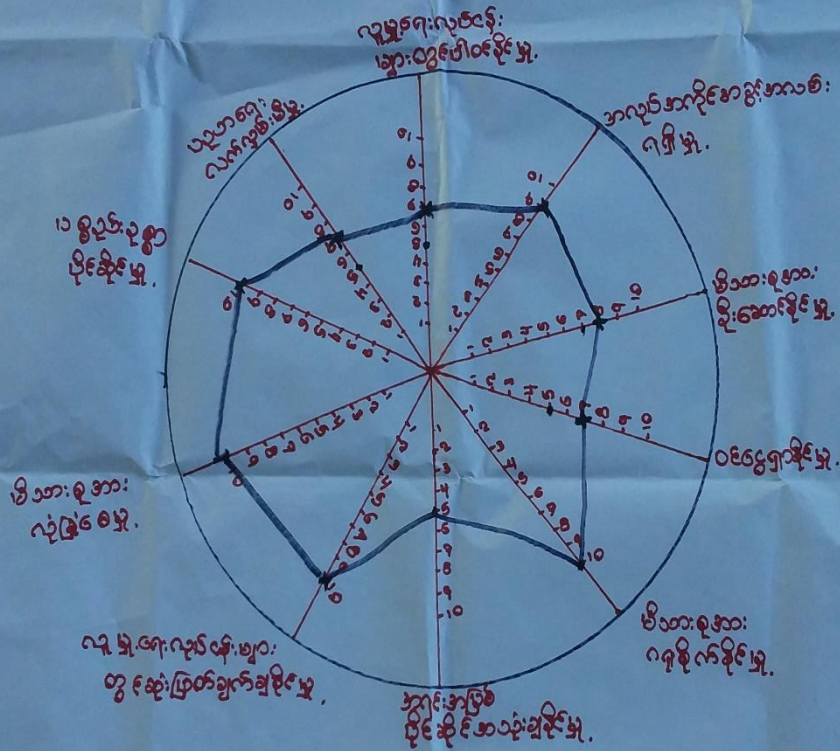 လူမှုရေးလုပ်ငန်း
များတွင်ပါဝင်နိုင်မှု.
အလုပ်အကိုင်အခွင့်အလမ်း
ရရှိမှု.
မိသားစုအား
ဦးဆောင်နိုင်မှု.
ဝင်ငွေရှာနိုင်မှု.
မိသားစုအား
ဂရုစိုက်နိုင်မှု.
အရင်းအမြစ်
ပိုင်ဆိုင်အသုံးချနိုင်မှု.
လူမှုရေးလုပ်ငန်းများ
တွင်ဆုံးဖြတ်ချက်ချနိုင်မှု.
မိသားစုအား
လုံခြုံစေမှု.
ပစ္စည်းဥစ္စာ
ပိုင်ဆိုင်မှု.
ပညာရေး
လက်လှမ်းမီမှု.